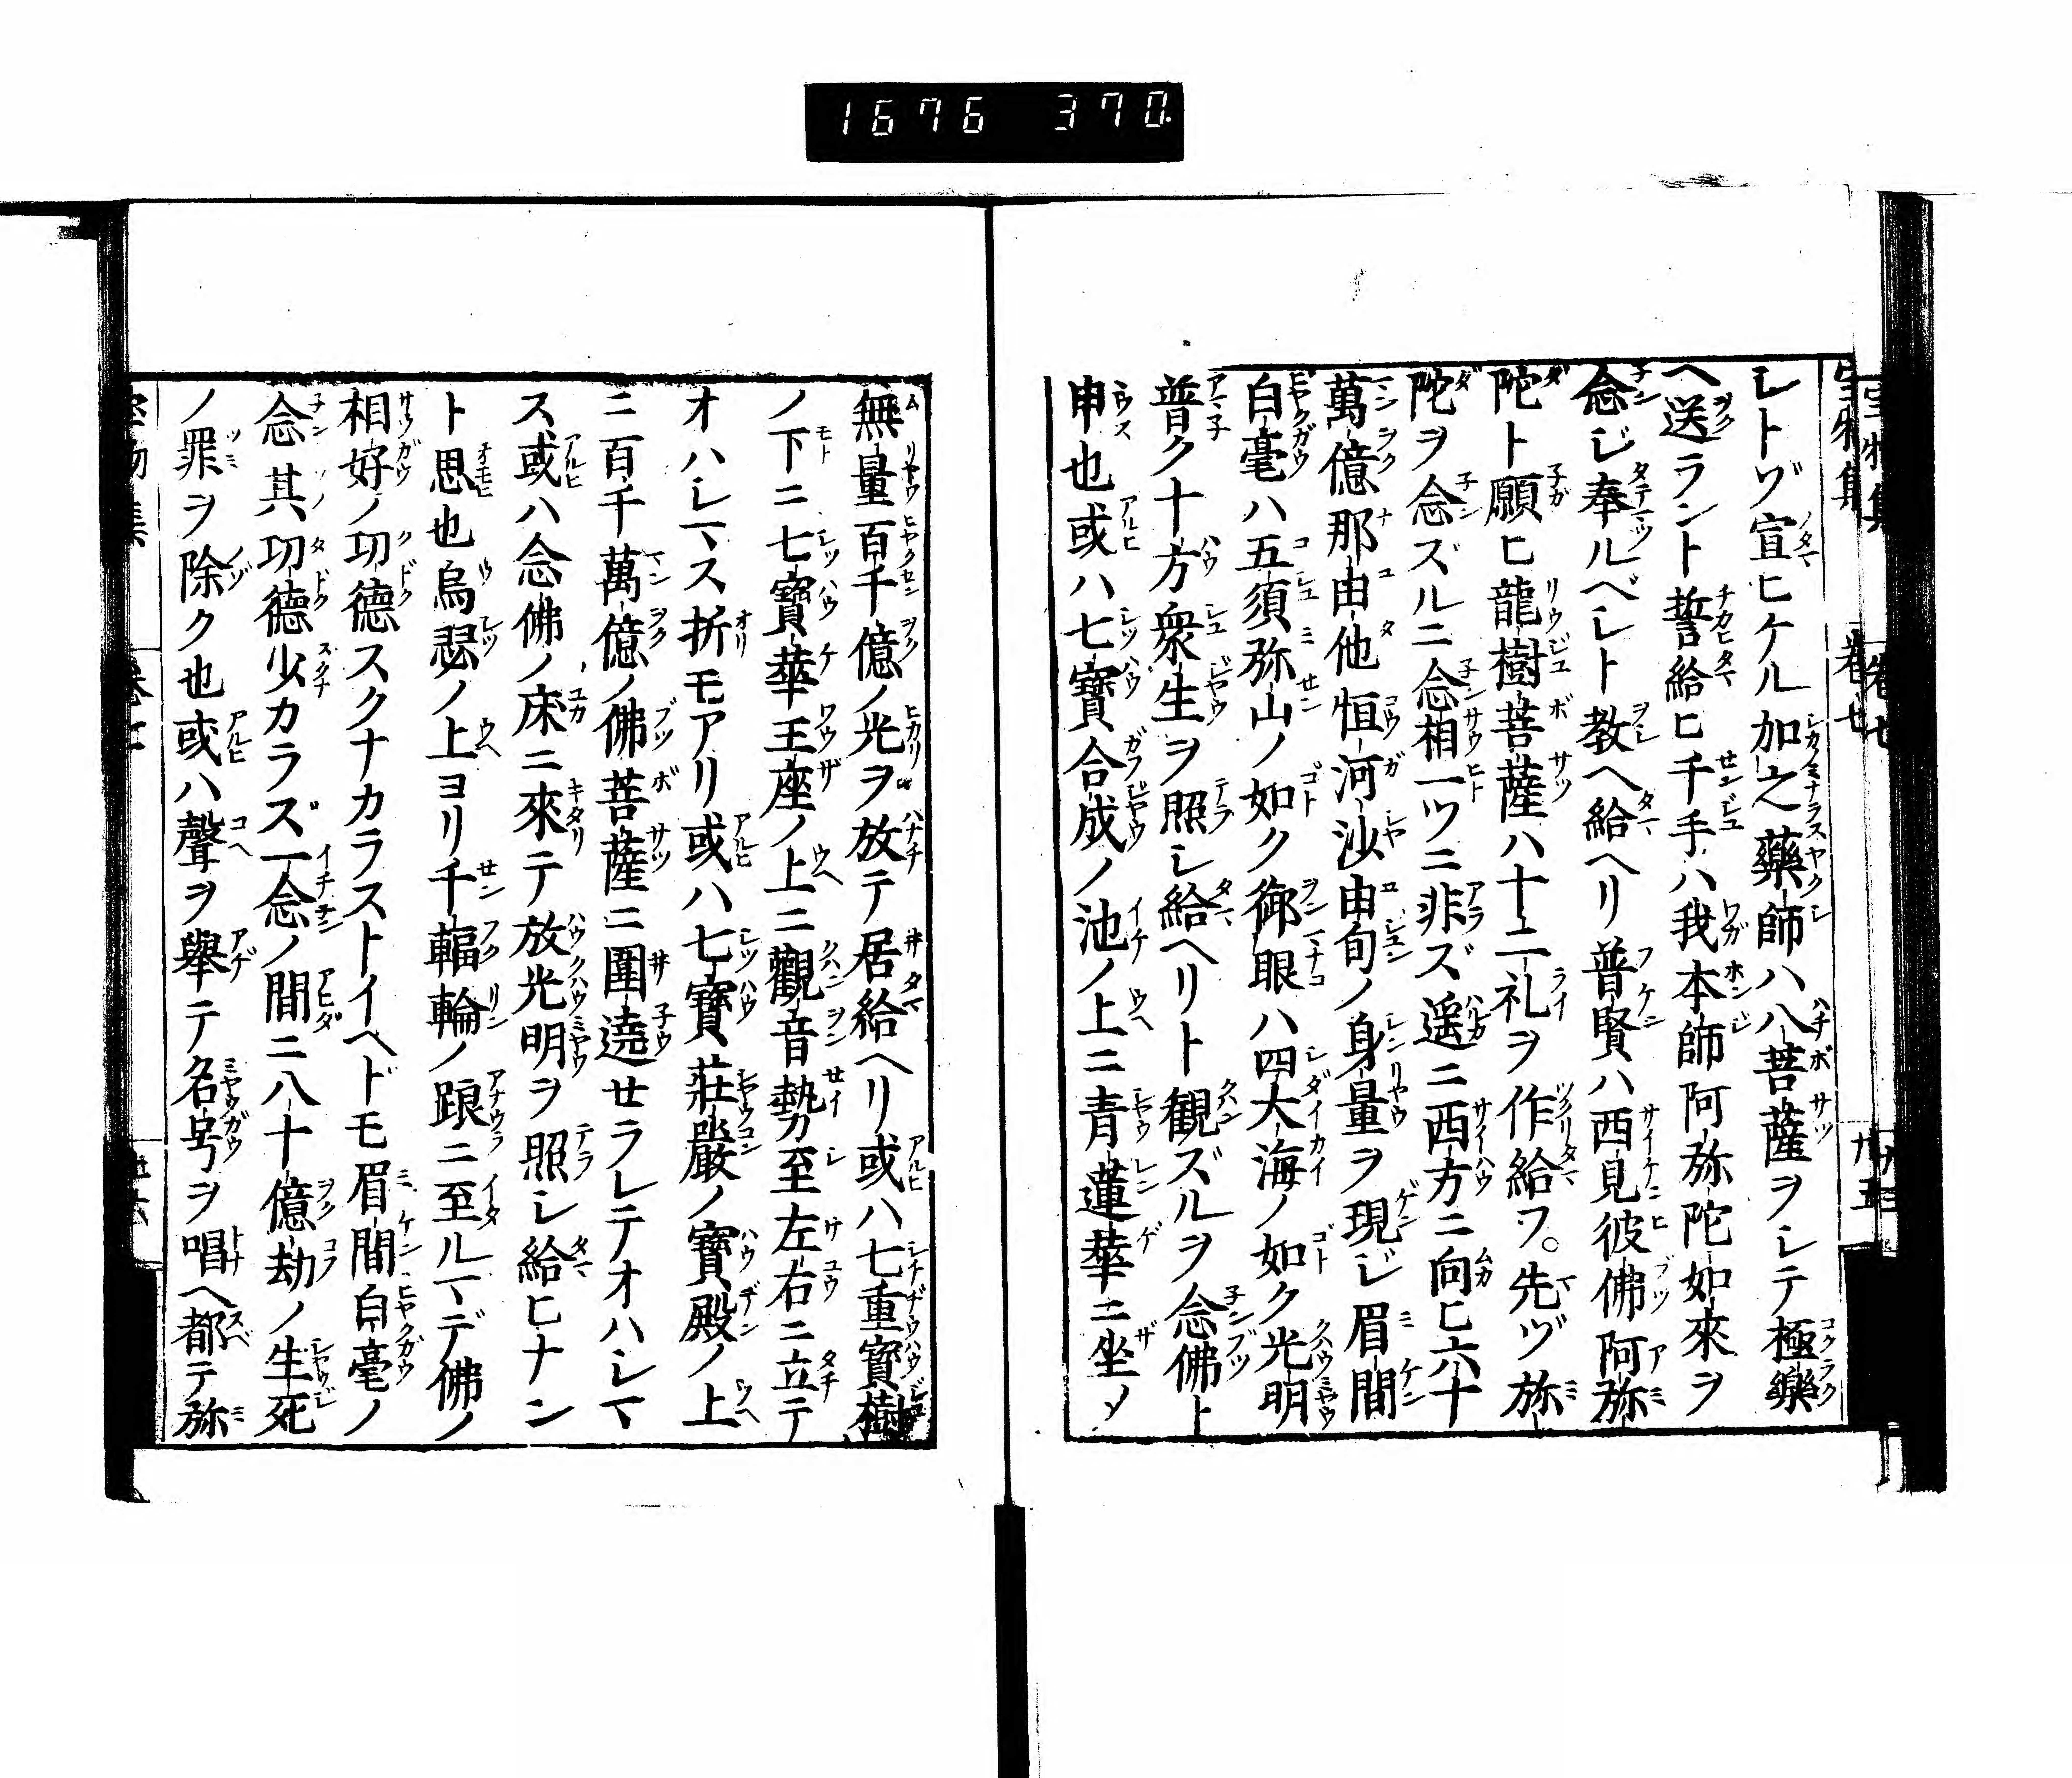 1676 370.
シトゾ宣ヒケル加之藥師ハ八菩薩ヲシテ極藥
ヘ送ラント誓給ヒ千手ハ我本師阿弥陀如來ヲ
念ジ奉ルベシト教ヘ給ヘリ普賢ハ西見彼佛阿弥
陀ト願ヒ龍樹菩薩ハ十二礼ヲ作給フ。先ヅ弥
陀ヲ念ズルニ念相一ツニ非ズ遥ニ西方ニ向ヒ六十
萬億那由他恒河沙由旬ノ身量ヲ現ジ眉間
白毫ハ五須弥山ノ如ク御眼ハ四大海ノ如ク光明
普ク十方衆生ヲ照シ給ヘリト観ズルヲ念佛ト
申也或ハ七寳合成ノ池ノ上ニ青蓮華ニ坐メ
無量百千億ノ光ヲ放テ居給ヘリ或ハ七重寳樹
ノ下ニ七寳華王座ノ上ニ觀音勢至左右ニ立テ
オハシマス折モアリ或ハ七寳莊嚴ノ寳殿ノ上
ニ百千萬億ノ佛菩薩ニ圍遶セラレテオハシマ
ス或ハ念佛ノ床ニ來テ放光明ヲ照シ給ヒナン
ト思也烏瑟ノ上ヨリ千輻輪ノ踉ニ至ルマデ佛ノ
相好ノ功徳スクナカラストイヘドモ眉間白毫ノ
念其功徳少カラズ一念ノ間ニ八十億劫ノ生死
ノ罪ヲ除ク也或ハ聲ヲ擧テ名号ヲ唱ヘ都テ弥